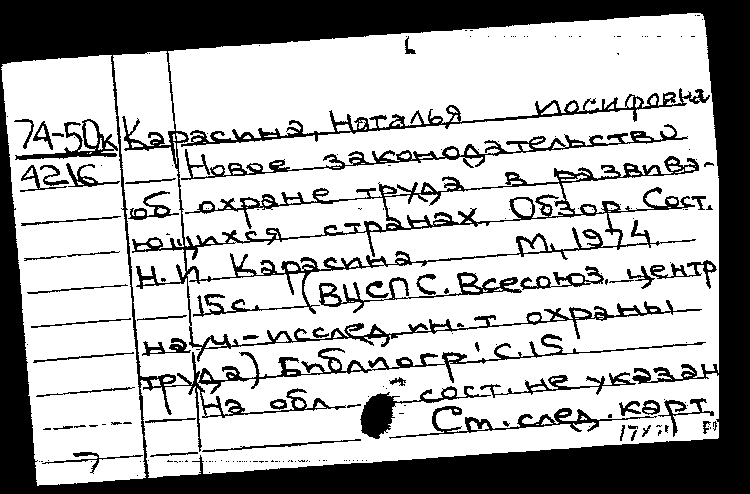 74-50к Карасина, Наталья Иосифовна
4216 Новое законодательство
об охране труда в развива-
ющихся странах. Обзор. Сост.
Н.И. Карасина. М., 1974.
15 с. (ВЦСПС. Всесоюз. центр
науч.-исслед. ин-т охраны
труда) Библиогр: с. 15.
На обл. сост. не указан
См. след. карт.